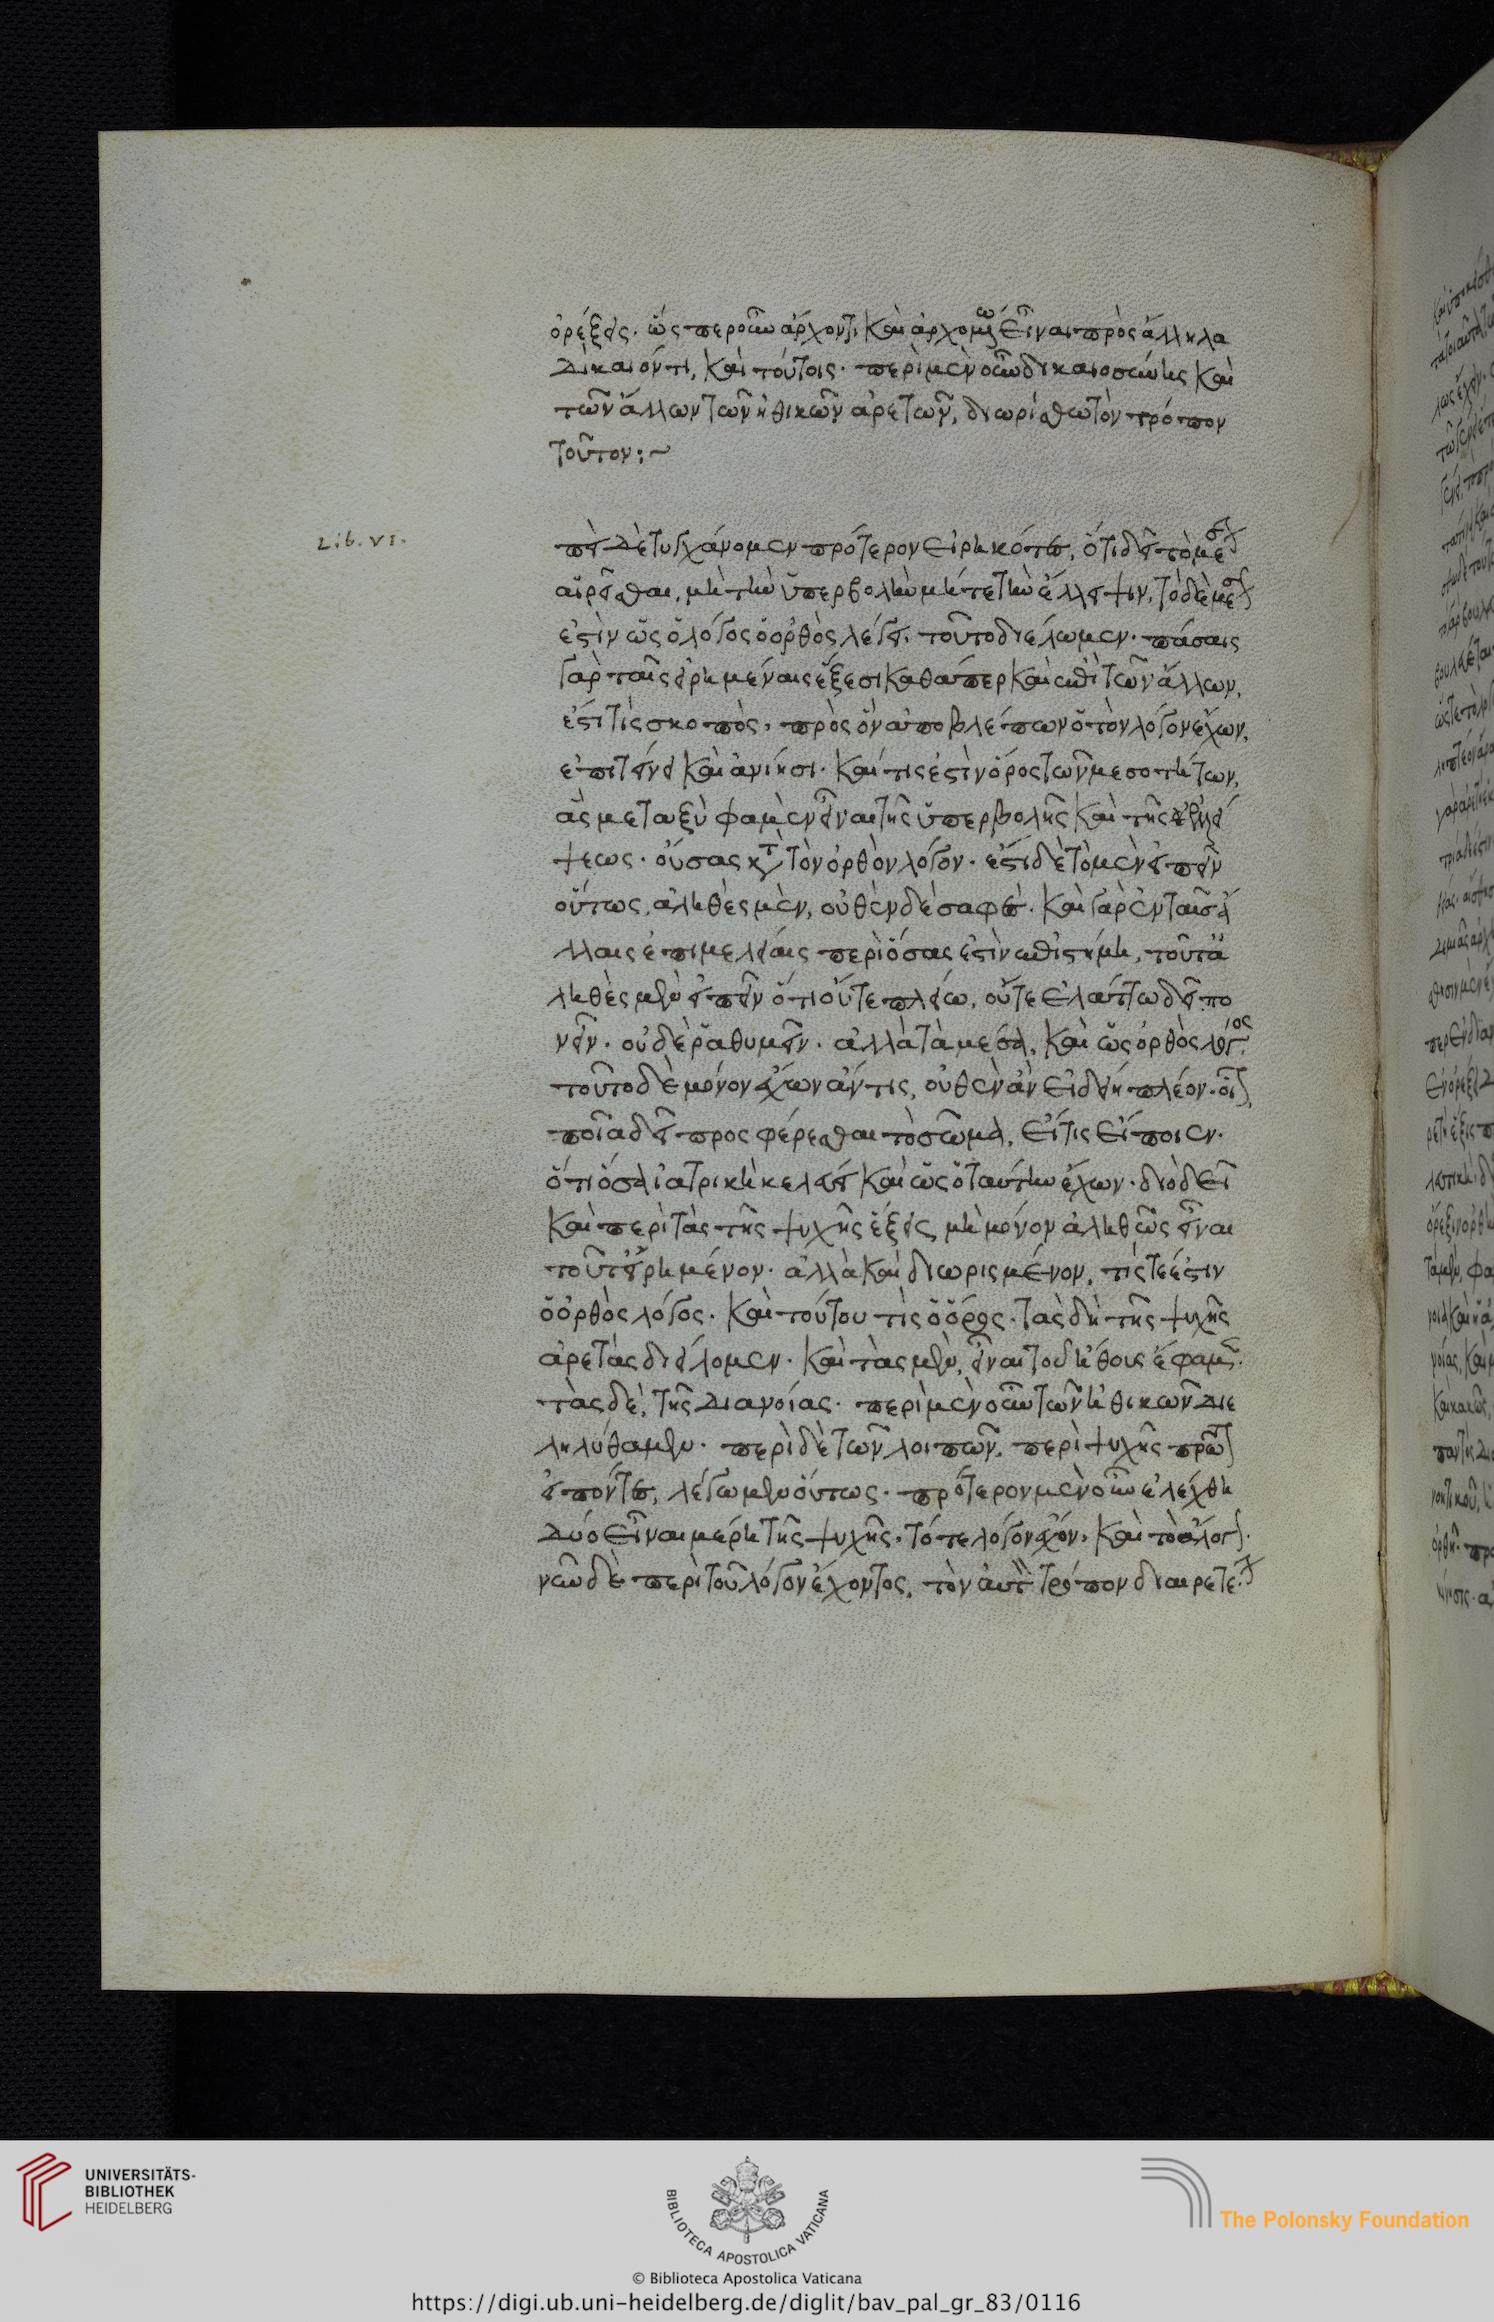 ὀρέξεις. ὥσπερ οὖν ἄρχοντι, καὶ ἀρχομένω εἶναι πρὸς ἄλληλα
Δίκαιόν τι, καὶ τούτοις. περὶ μὲν οὖν δικαιοσύνης καὶ
τῶν ἄλλων τῶν ἠθικῶν ἀρετῶν, διωρίσθω τὸν τρόπον
τοῦτον:~
Lib. VI.
πεὶ Δὲ τυγχάνομεν πρότερον εἰρηκότες, ὅτι δεῖ τὸ μέσον
αἱρεῖσθαι, μὴ τὴν ὑπερβολὴν μήτε τὴν ἔλλειψιν, τὸ δὲ μέσον
ἐστὶν ὡς ὁ λόγος ὁ ὀρθὸς λέγει, τοῦτο διέλωμεν. πάσαις
γὰρ ταῖς εἰρημέναις ἕξεσι καθάπερ καὶ ἐπὶ τῶν ἄλλων,
ἔστι τὶς σκοπὸς, πρὸς ὃν ἀποβλέπων ὁ τὸν λόγον ἔχων,
ἐπιτείνει καὶ ἀνίησι. καί τις ἐστὶν ὅρος τῶν μεσοτήτων,
ἃς μεταξὺ φαμὲν εἶναι τῆς ὑπερβολῆς καὶ τῆς ἐλλεί
ψεως. οὔσας κατὰ τὸν ὀρθὸν λόγον. ἔστι δὲ τὸ μὲν εἰπεῖν
οὕτως, ἀληθὲς μὲν, οὐθὲν δὲ σαφές. καὶ γὰρ ἐν ταῖς ἄ
λλαις ἐπιμελείαις περὶ ὅσας ἐστὶν ἐπιστήμη, τοῦτ' ἀ
ληθὲς μὲν εἰπεῖν ὅτι οὔτε πλείω, οὔτε ἐλάττω δεῖ πο
νεῖν. οὐδὲ ῥαθυμεῖν. ἀλλὰ τὰ μέσα, καὶ ὡς ὀρθὸς λόγος.
τοῦτο δὲ μόνον ἔχων ἄν τις, οὐθὲν ἂν εἰδείη πλέον. οἷον,
ποῖα δεῖ προσφέρεσθαι τὸ σῶμα, εἴ τις εἴποιεν.
ὅτι ὅσα ἰατρικὴ κελεύει καὶ ὡς ὁ ταύτην ἔχων. διὸ δεῖ
καὶ περὶ τὰς τῆς ψυχῆς ἕξεις, μὴ μόνον ἀληθῶς εἶναι
τοῦτ' εἰρημένον. ἀλλὰ καὶ διωρισμένον, τίς τε ἐστιν
ὁ ὀρθὸς λόγος. καὶ τούτου τίς ὁ ὅρος. τὰς δὴ τῆς ψυχῆς
ἀρετὰς διειλόμεν. καὶ τὰς μὲν, εἶναι τοῦ ἤθους ἔφαμεν.
τὰς δὲ, τῆς Διανοίας. περὶ μὲν οὖν τῶν ἠθικῶν Διε
ληλύθαμεν. περὶ δὲ τῶν λοιπῶν, περὶ ψυχῆς πρῶτον
εἰπόντες, λέγωμεν οὕτως. πρότερον μὲν οὖν ἐλέχθη
Δύο εἶναι μέρη τῆς ψυχῆς. τό τε λόγον ἔχον, καὶ τὸ ἄλογον.
νῦν δὲ περὶ τοῦ λόγον ἔχοντος, τὸν αὐτὸν τρόπον διαιρετέον.
UNIVERSITÄTS-
BIBLIOTHEK
HEIDELBERG
BIBLIOTECA APOSTOLICA VATICANA
© Biblioteca Apostolica Vaticana
The Polonsky Foundation
https://digi.ub.uni-heidelberg.de/diglit/bav_pal_gr_83/0116